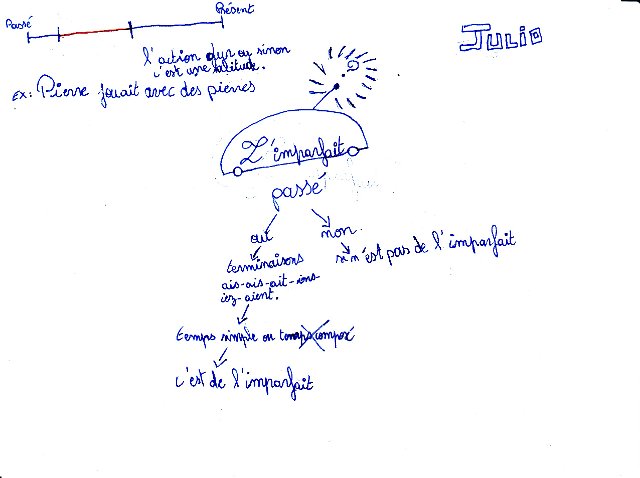 Passé
Présent
JULIO
l'action dur ou sinon
c'est une
Ex: Pierre jouait avec des pierres
?
L'imparfait
passé
oui
non
terminaisons
ais-ais-ait-ions-
iez-aient.
n'est pas de l'imparfait
temps simple ou temps composé
c'est de l'imparfait